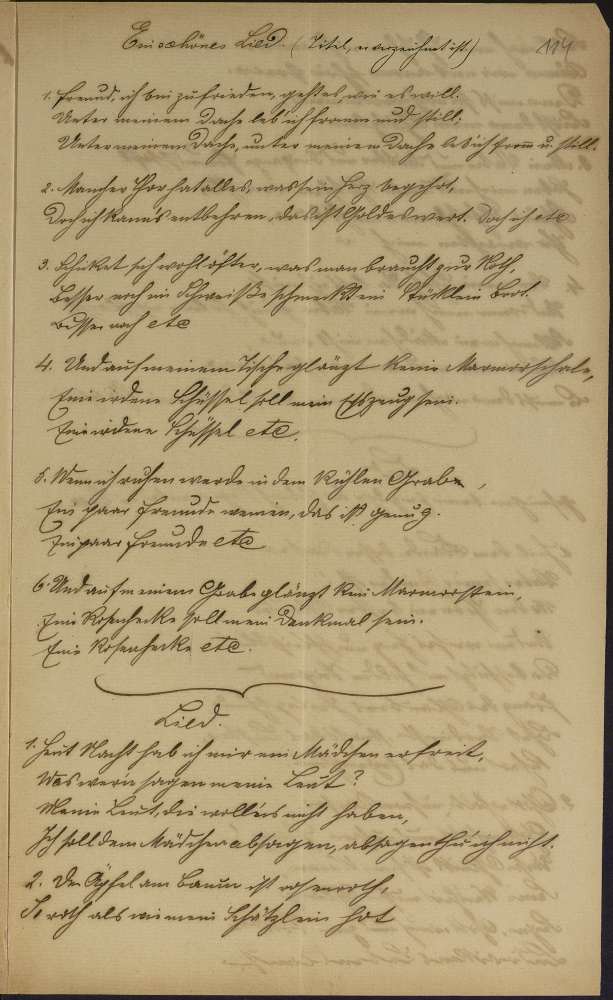 Ein schönes Lied. (Titel, so verzeichnet ist.) 114
1. Freund, ich bin zufrieden, geht es, wie es will.
Unter meinem Dache leb' ich fromm und still.
Unter meinem Dache, unter meinem Dache leb ich from̄ u. still.
2. Mancher Thor hat alles, was sein Herz begehrt,
Doch ich kann's entbehren, das ist Goldes wert. Doch ich etc
3. sich wohl öfter, was man braucht zur Noth,
Besser noch im Schweiße schmeckt ein Stücklein Brot.
Besser noch etc
4. Und auf meinem Tische glänzt keine Marmorschale,
Eine irdene Schüssel soll mein Eßzeug sein.
Eine irdene Schüssel etc.
5. Wenn ich ruhen werde in dem kühlen Grabe,
Ein paar Freunde weinen, das ist genug.
Ein paar Freunde etc
6. Und auf meinem Grabe glänzt kein Marmorstein,
Eine Rosenhecke soll mein Denkmal sein.
Eine Rosenhecke etc.
Lied.
1. Heut Nacht hab ich mir ein Mädchen erfreit,
Was wern sagen meine Leut?
Meine Leut, die wollens nicht haben,
Ich soll dem Mädchen absagen, absagen thu ich nicht.
2. Der Äpfel am Baum ist rosenroth,
So roth als wie mein Schätzlein hat